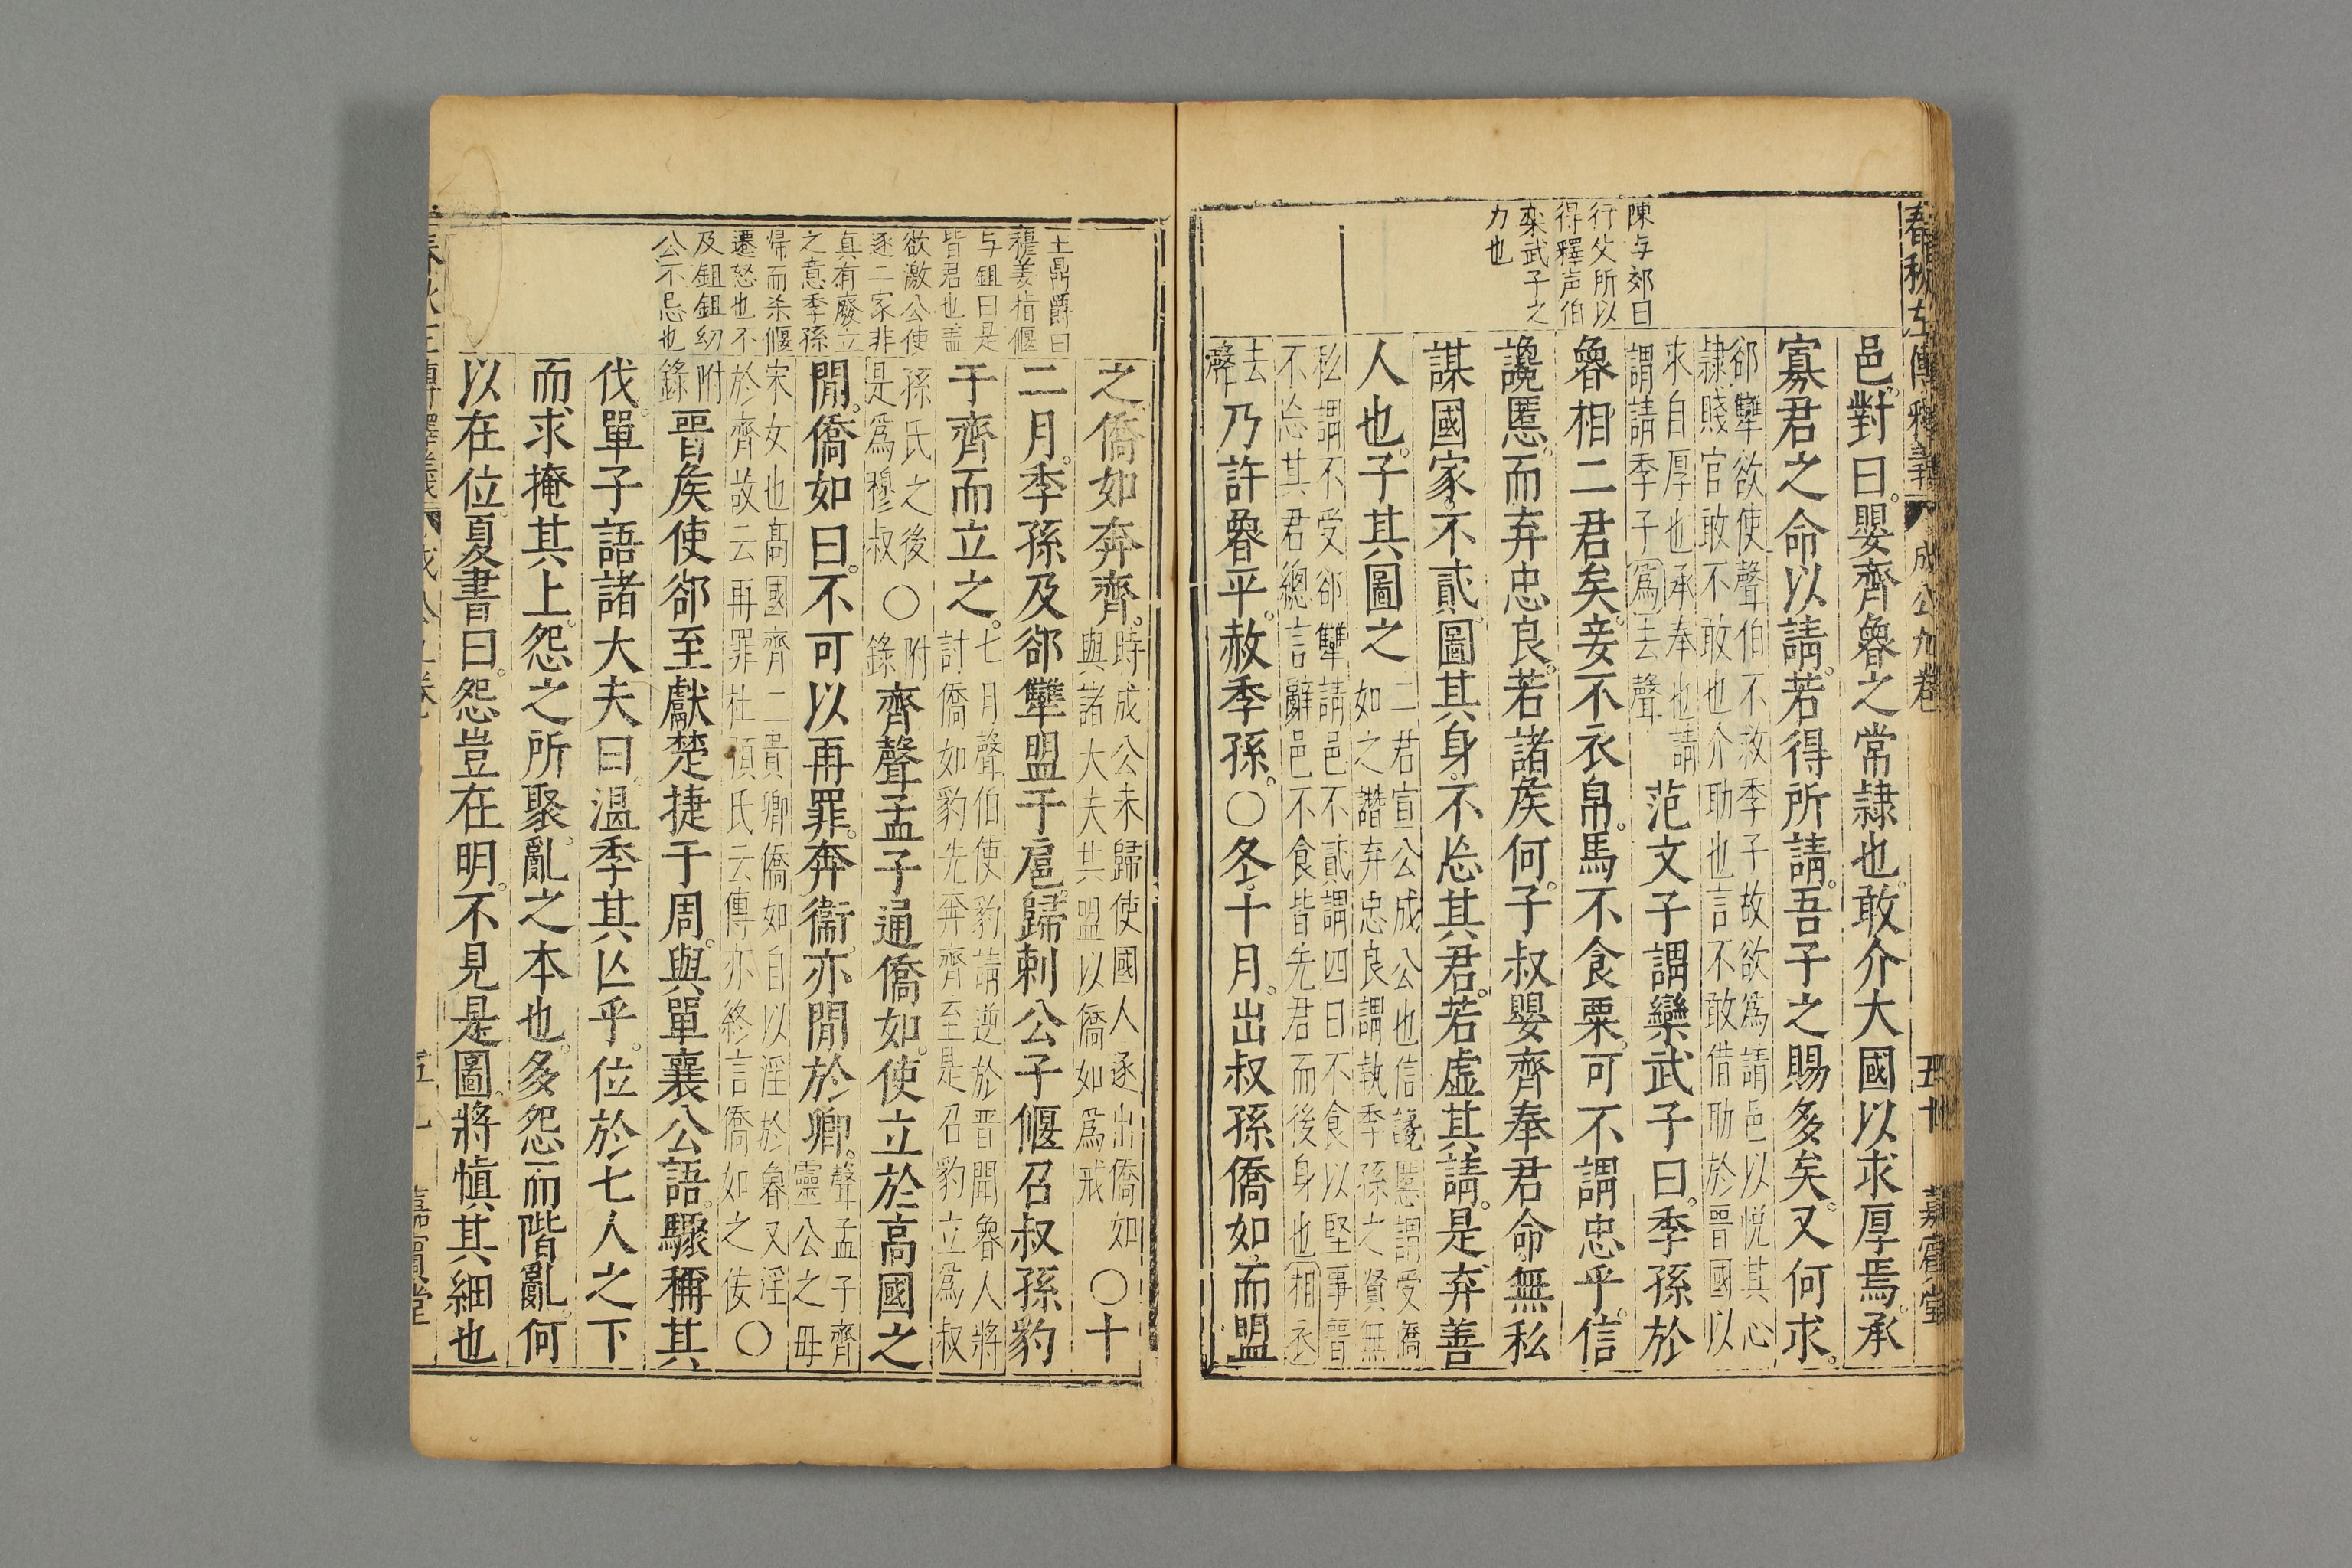 春秋左傳釋義 成公九卷 五十 嘉賓堂
陳与郊曰
行父所以
得釋声伯
栾武子之
力也
邑對曰嬰齊魯之常隷也敢介大國以求厚焉承
寡君之命以請若得所請吾子之賜多矣又何求
郤犫欲使聲伯不救季子故欲爲請邑以悅其心
隷賤官敢不敢也介助也言不敢借助於晋國以
求自厚也承奉也請
謂請季子爲去聲
范文子謂欒武子曰季孫於
魯相二君矣妾不衣帛馬不食粟可不謂忠乎信
讒慝而弃忠良若諸矦何子叔嬰齊奉君命無私
謀國家不貳圖其身不㤀其君若虚其請是弃善
人也子其圖之
二君宣公成公也信讒慝謂受僑
如之譖弃忠良謂執季孫之賢無
私謂不受郤犫請邑不貳謂四日不食以堅事晋
不㤀其君總言辭邑不食皆先君而後身也相衣
去
聲
乃許魯平赦季孫○冬十月出叔孫僑如而盟
王鼎爵曰
穆姜指偃
与鉏曰是
皆君也盖
欲激公使
逐二家非
真有廢立
之意季孫
帰而杀偃
遷怒也不
及鉏鉏幼
公不忌也
之僑如奔齊
時成公未歸使國人逐出僑如
與諸大夫共盟以僑如爲戒
○十
二月季孫及郤犫盟于扈歸刺公子偃召叔孫豹
于齊而立之
七月聲伯使豹請逆於晋聞魯人將
討僑如豹先奔齊至是召豹立爲叔
孫氏之後
是爲穆叔
○
附
錄
齊聲孟子通僑如使立於高國之
閒僑如曰不可以再罪奔衞亦閒於卿
聲孟子齊
靈公之毋
宋女也高國齊二貴卿僑如自以淫於魯又淫
於齊故云再罪杜預氏云傳亦終言僑如之佞
○
附
錄
晋矦使郤至獻楚捷于周與單襄公語驟稱其
伐單子語諸大夫曰温季其亾乎位於七人之下
而求掩其上怨之所聚亂之本也多怨而階亂何
以在位夏書曰怨豈在明不見是圖將愼其細也